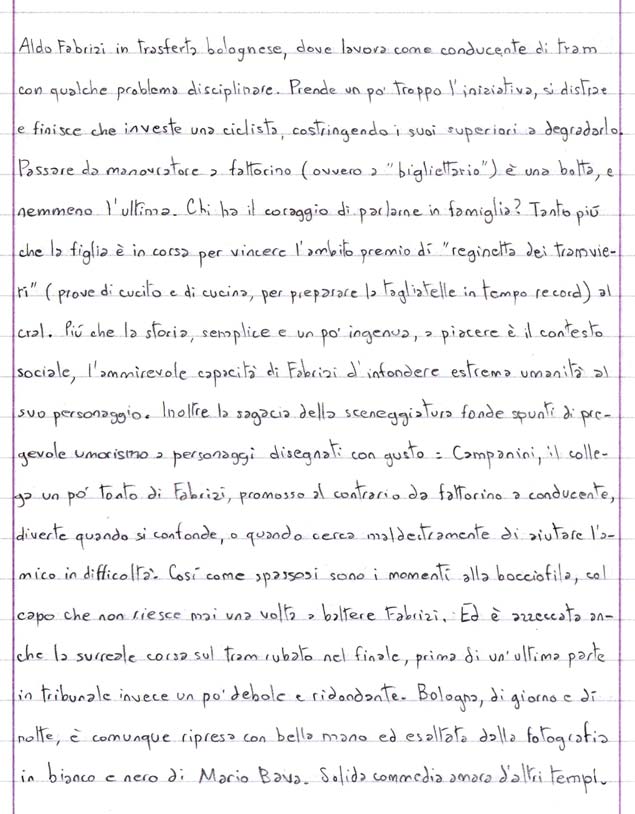 Aldo Fabrizi in trasferta bolognese, dove lavora come conducente di tram
con qualche problema disciplinare. Prende un po' troppo l'iniziativa, si distrae
e finisce che investe una ciclista, costringendo i suoi superiori a degradarlo.
Passare da manovratore a fattorino (ovvero a "bigliettario") è una botta, e
nemmeno l'ultima. Chi ha il coraggio di parlarne in famiglia? Tanto più
che la figlia è in corsa per vincere l'ambito premio di "reginetta dei tramvie-
ri" (prove di cucito e di cucina, per preparare la tagliatelle in tempo record) al
cral. Più che la storia, semplice e un po' ingenua, a piacere è il contesto
sociale, l'ammirevole capacità di Fabrizi d'infondere estrema umanità al
suo personaggio. Inoltre la sagacia della sceneggiatura fonde spunti di pre-
gevole umorismo a personaggi disegnati con gusto: Campanini, il colle-
ga un po' tonto di Fabrizi, promosso al contrario da fattorino a conducente,
diverte quando si confonde, o quando cerca maldestramente di aiutare l'a-
mico in difficoltà. Così come spassosi sono i momenti alla bocciofila, col
capo che non riesce mai una volta a battere Fabrizi. Ed è azzeccata an-
che la surreale corsa sul tram rubato nel finale, prima di un'ultima parte
in tribunale invece un po' debole e ridondante. Bologna, di giorno e di
notte, è comunque ripresa con bella mano ed esaltata dalla fotografia
in bianco e nero di Mario Bava. Solida commedia amara d'altri tempi.